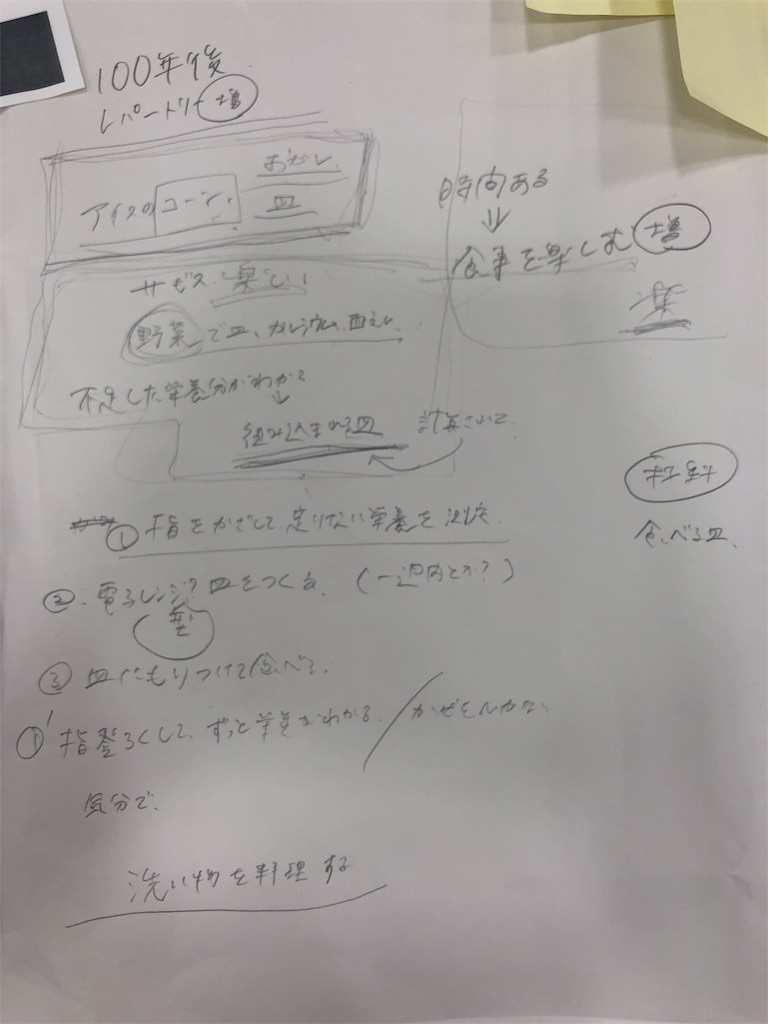 100年後
レパートリー 増
おかし
アイスのコーン、皿
時間ある
⇓
食事を楽しむ 増
楽
サービス 楽しい
野菜で皿、カルシウム
不足した栄養分がわかる
↓
組み込まれる皿 計算されて
① 指をかざして、足りない栄養を測定
食べる皿
② 電子レンジ? 皿をつくる (一週間とか?)
型
③ 皿にもりつけて食べる。
①' 指登ろくして、ずっと栄養がわかる
気分で、
洗い物を料理する